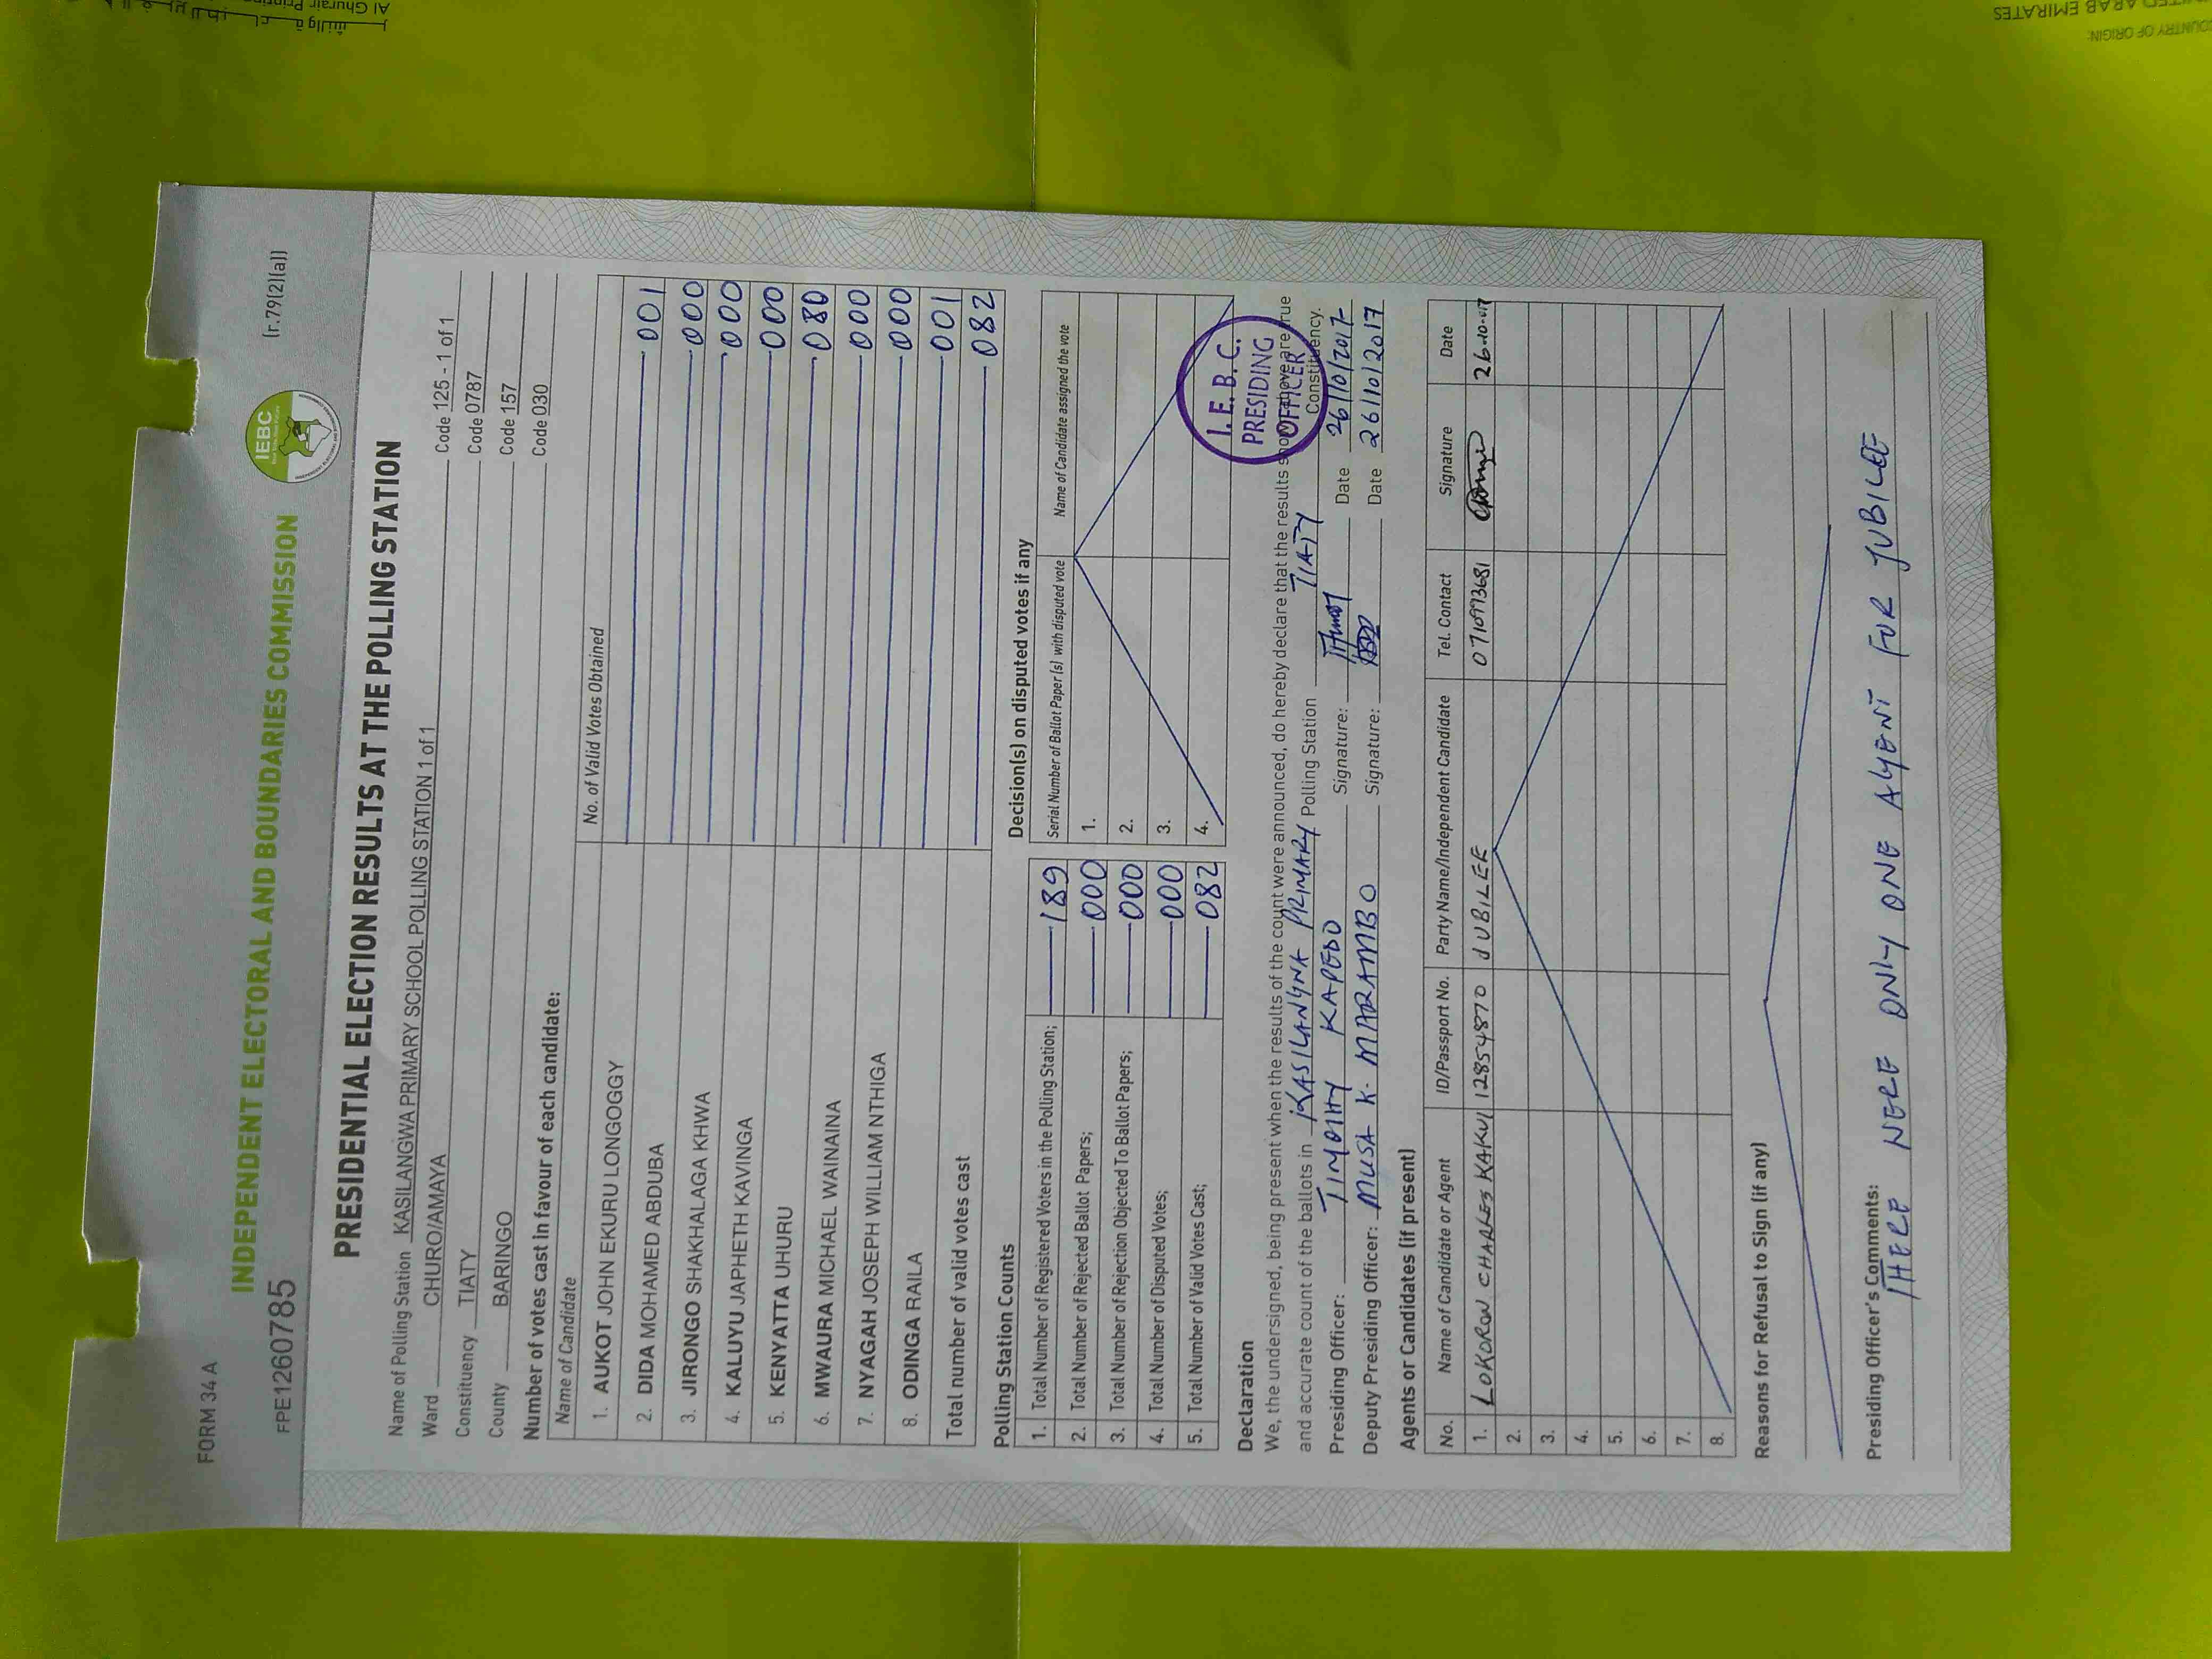 FORM 34 A
INDEPENDENT ELECTORAL AND BOUNDARIES COMMISSION
IEBC
(r.79(2)(a))
FPE1260785
PRESIDENTIAL ELECTION RESULTS AT THE POLLING STATION
Name of Polling Station KASILANGWA PRIMARY SCHOOL POLLING STATION 1 of 1 Code 125 - 1 of 1
Ward CHURO/AMAYA Code 0787
Constituency TIATY Code 157
County BARINGO Code 030
Number of votes cast in favour of each candidate:
Name of Candidate No. of Valid Votes Obtained
1. AUKOT JOHN EKURU LONGOGGY 001
2. DIDA MOHAMED ABDUBA 000
3. JIRONGO SHAKHALAGA KHWA 000
4. KALUYU JAPHETH KAVINGA 000
5. KENYATTA UHURU 080
6. MWAURA MICHAEL WAINAINA 000
7. NYAGAH JOSEPH WILLIAM NTHIGA 000
8. ODINGA RAILA 001
Total number of valid votes cast 082
Polling Station Counts
1. Total Number of Registered Voters in the Polling Station; 189
2. Total Number of Rejected Ballot Papers; 000
3. Total Number of Rejection Objected To Ballot Papers; 000
4. Total Number of Disputed Votes; 000
5. Total Number of Valid Votes Cast; 082
Decision(s) on disputed votes if any
Serial Number of Ballot Paper (s) with disputed vote Name of Candidate assigned the vote
1.
2.
3.
4.
I. E. B. C.
PRESIDING
OFFICER
Declaration
We, the undersigned, being present when the results of the count were announced, do hereby declare that the results shown above are true
and accurate count of the ballots in KASILANGWA PRIMARY Polling Station TIATY Constituency.
Presiding Officer: TIMOTHY KAPEDO Signature: Date 26/10/2017
Deputy Presiding Officer: MUSA K. MARAMBO Signature: Date 26/10/2017
Agents or Candidates (if present)
No. Name of Candidate or Agent ID/Passport No. Party Name/Independent Candidate Tel. Contact Signature Date
1. LOKORON CHARLES KAKUI 12854870 JUBILEE 0710973681 26-10-017
2.
3.
4.
5.
6.
7.
8.
Reasons for Refusal to Sign (if any)
Presiding Officer's Comments:
THERE WERE ONLY ONE AGENT FOR JUBILEE
COUNTRY OF ORIGIN:
UNITED ARAB EMIRATES